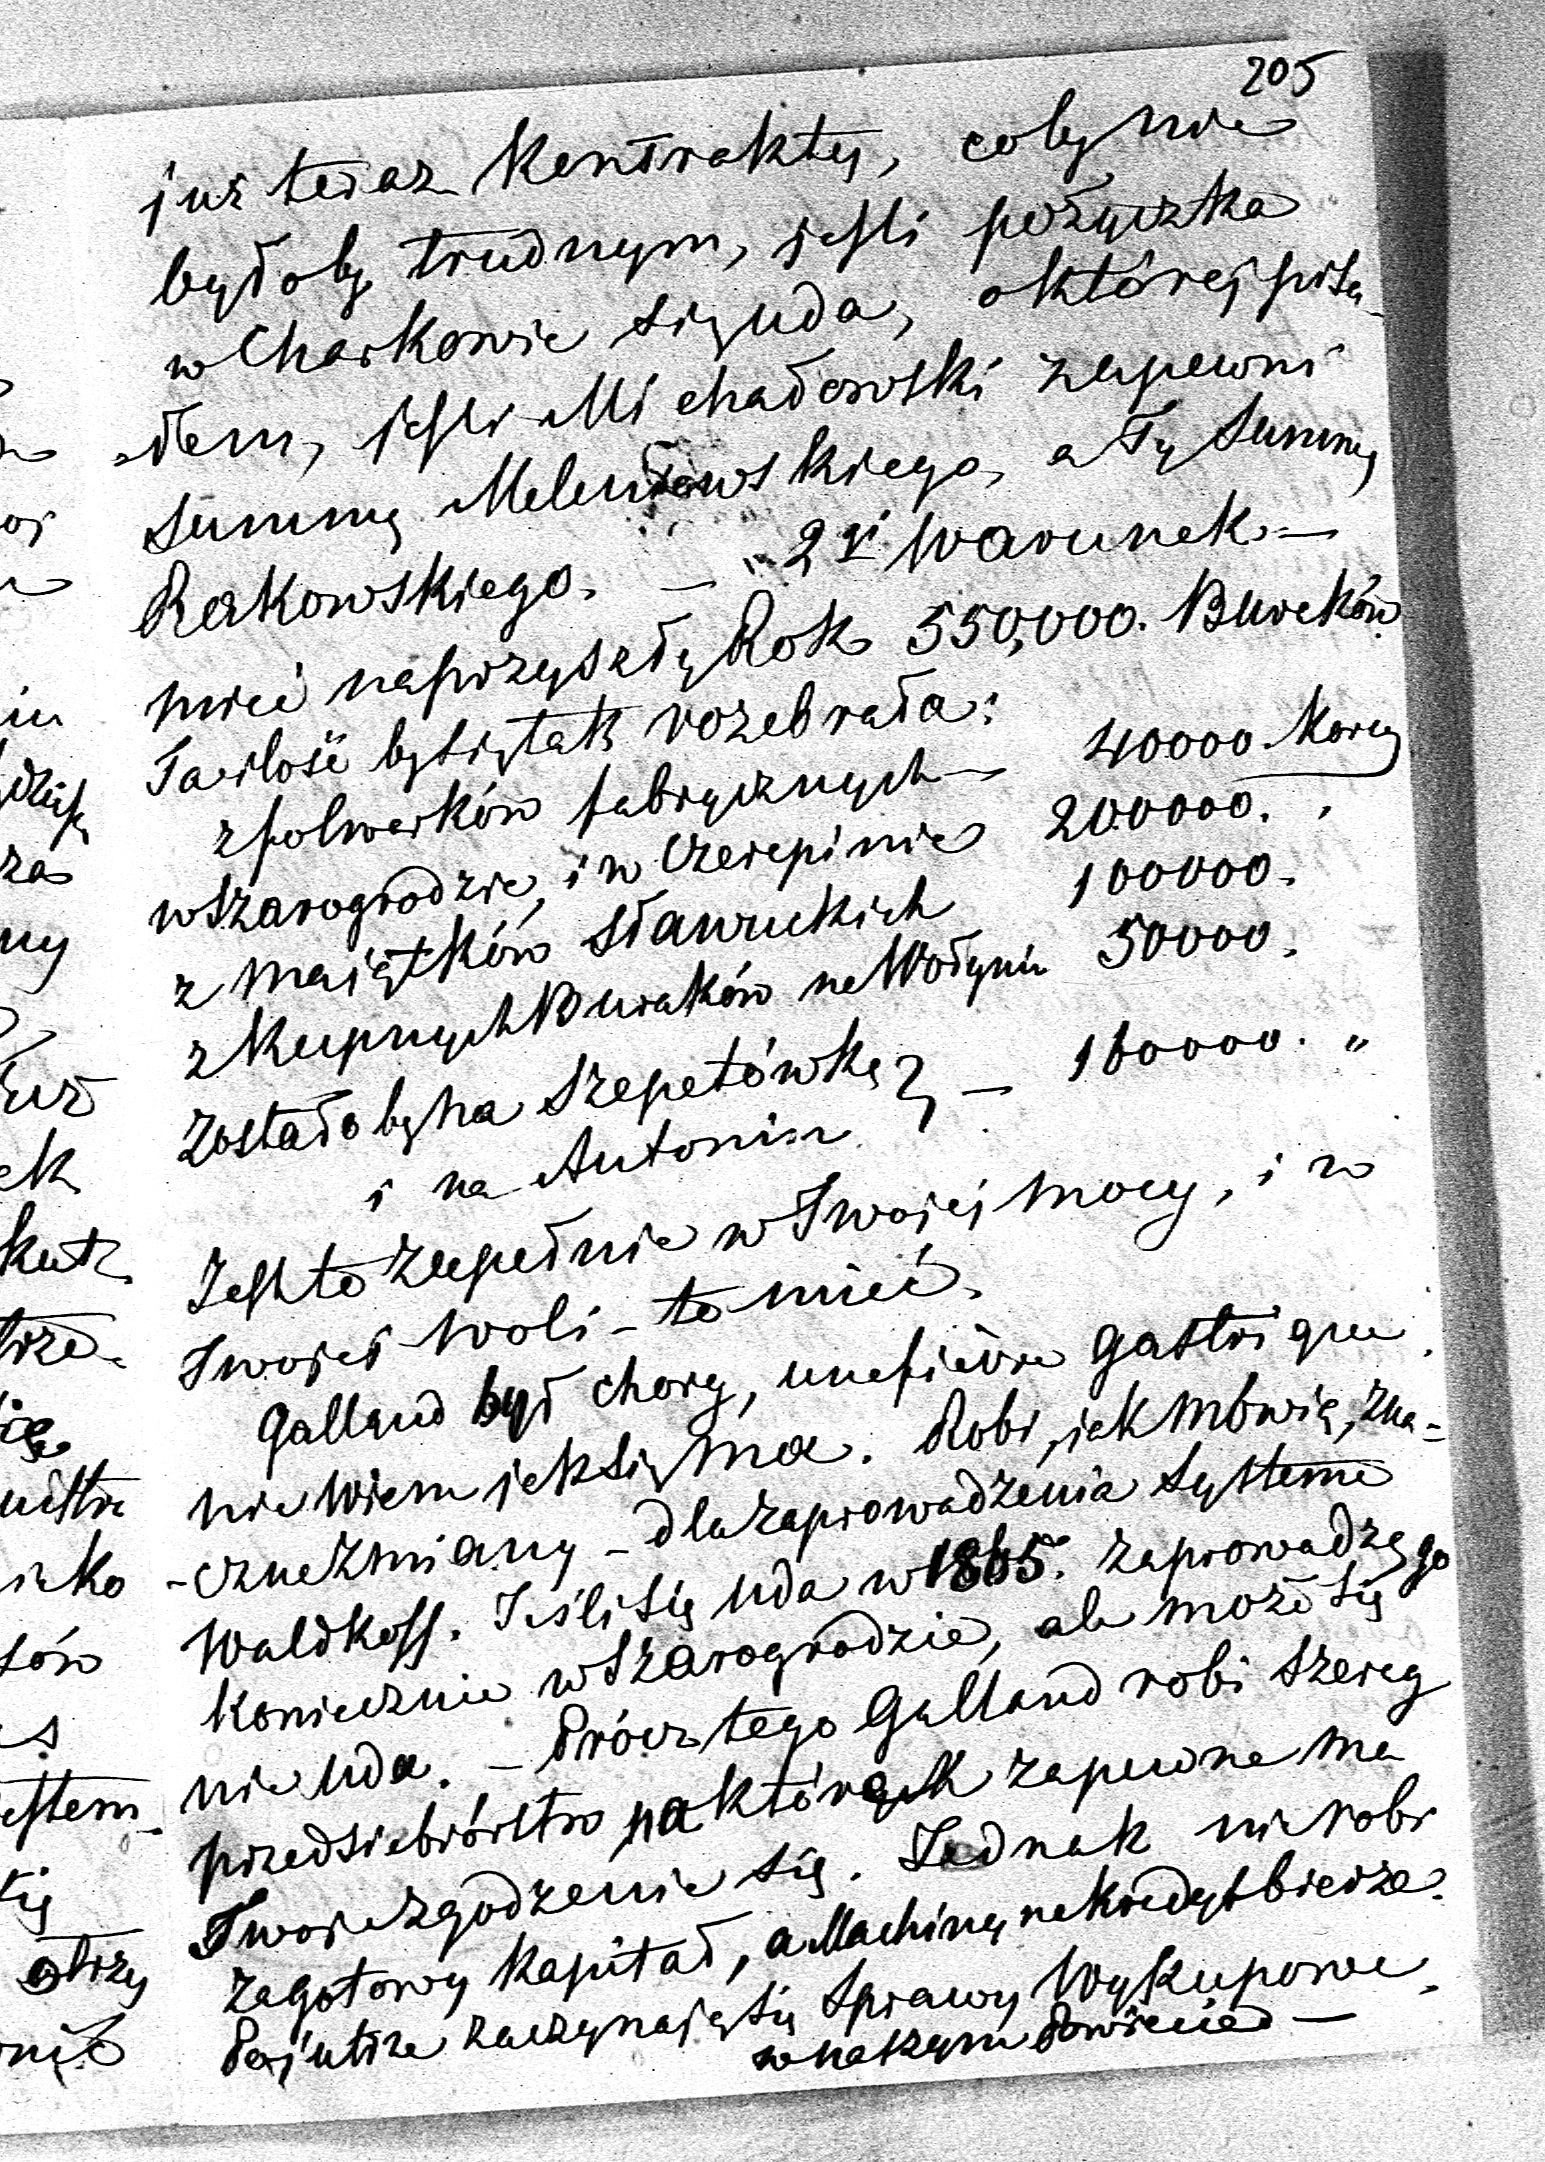 205
już teraz Kontrakty, coby nie
byłoby trudnym, jeśli pożyczka
w Charkowie się uda, o której pisa-
-łem, jeśli Michałowski zapewni
Summę Meleniewskiego, a Ty Summę
Rakowskiego. — 2i Warunek —
mieć na przyszły Rok 550,000. Buraków
Ta ilość by się tak rozebrała:
z folwarków fabrycznych — 40000 Korcy
w Szarogrodzie, i w Czerepinie 200000. "
z majątków Sławuckich 100000.
z Kupnych Buraków na Wołyniu 50000.
Zostało by na Szepetówkę } — 160000. "
i na Antonin
Jest to zupełnie w Twojej mocy, i w
Twojej woli — to mieć.
Galland był chory, une fièvre gastrique.
nie wiem jak się ma. Robi, jak mówią, zna=
-czne zmiany — dla zaprowadzenia Systeme
Waldkoff. Jeśli się uda w 1865. zaprowadzę go
koniecznie w Szarogrodzie, ale może się
nie uda. — Prócz tego Galland robi szereg
przedsiebiórstw na których zapewne ma
Twoje zgodzenie się. Jednak nie robi
za gotowy Kapitał, a Machiny na Kredyt bierze.
Pojutrze zaczynają się Sprawy Wykupowe
w naszym Powiecie —